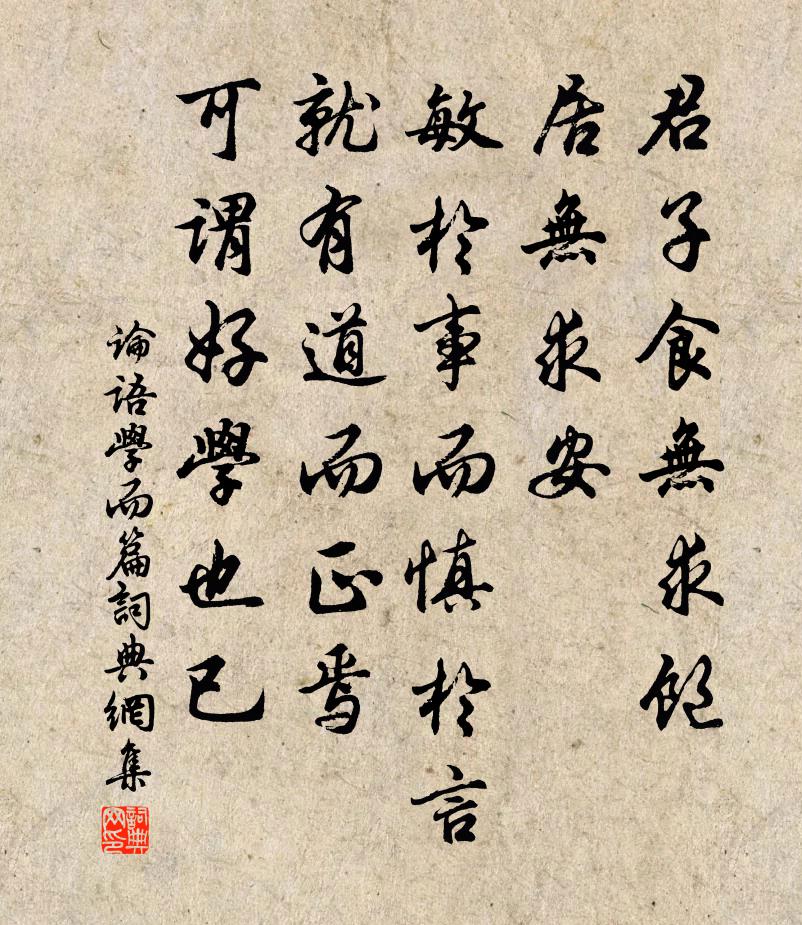 君子食無求飽
居無求安
敏於事而慎於言
就有道而正焉
可謂好學也已
論語學而篇詞典網集
詞典網印